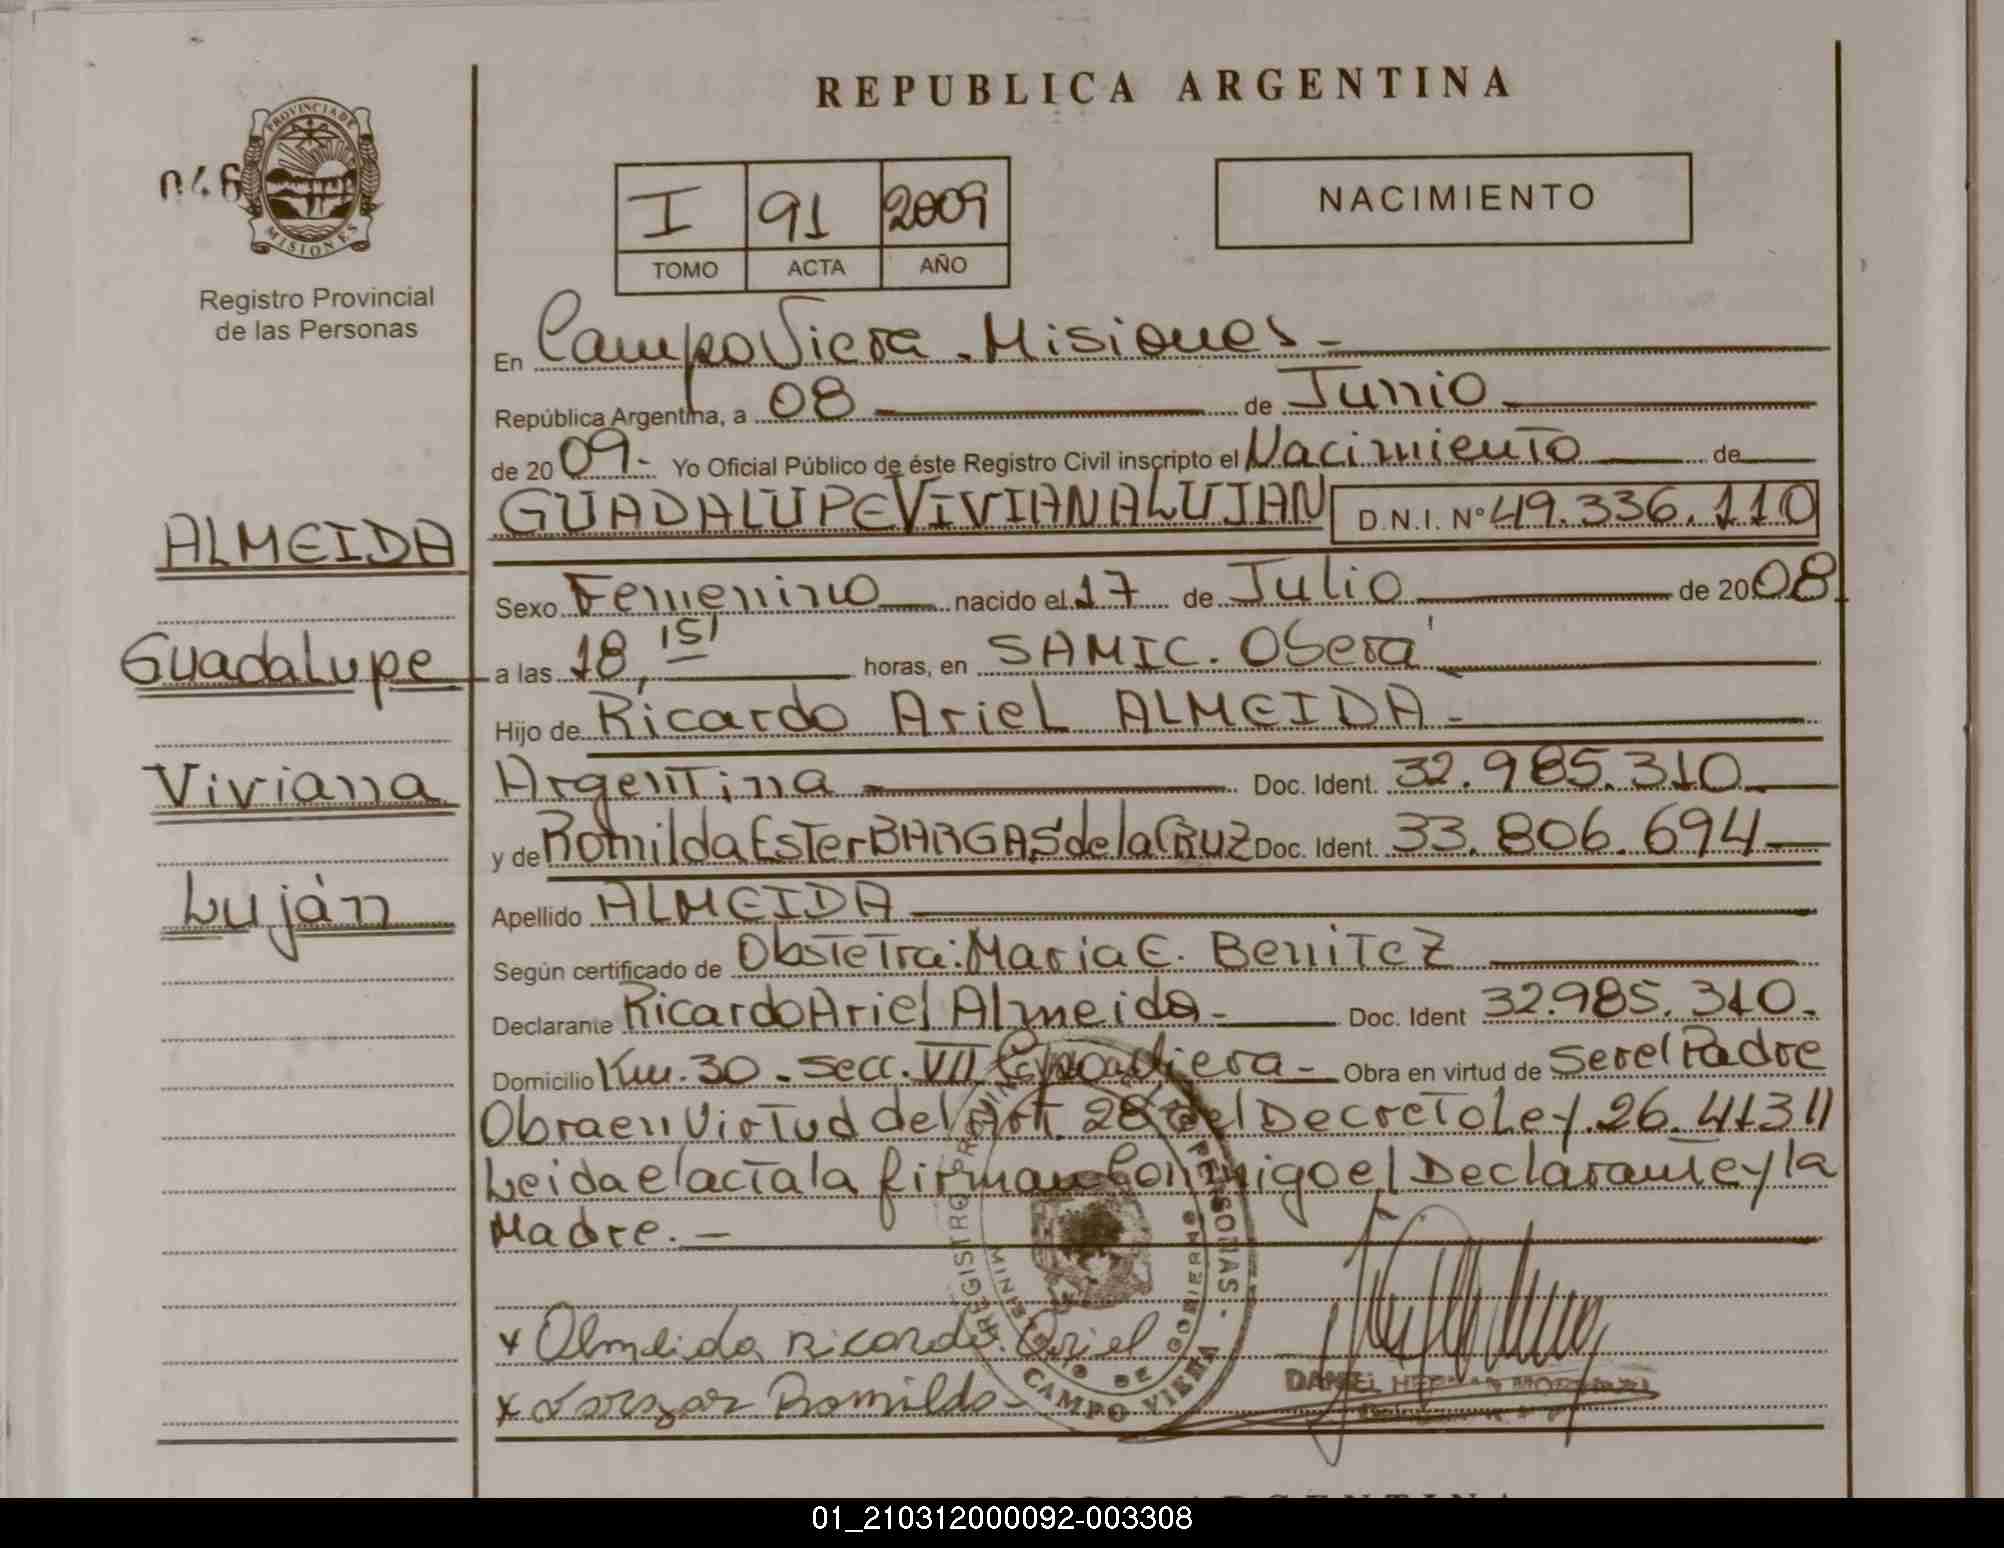 REPUBLICA ARGENTINA
PROVINCIA DE
MISIONES
046
I 91 2009
TOMO ACTA AÑO
NACIMIENTO
Registro Provincial
de las Personas
En Campo Viera - Misiones -
República Argentina, a 08 de Junio
de 2009.- Yo Oficial Público de éste Registro Civil inscripto el Nacimiento de
GUADALUPE VIVIANA LUJAN D.N.I. Nº 49.336.110
ALMEIDA
Sexo Femenino nacido el 17 de Julio de 2008
Guadalupe
a las 18,15' horas, en SAMIC. Oberá
Hijo de Ricardo Ariel ALMEIDA -
Viviana
Argentina Doc. Ident. 32.985.310
y de Romilda Ester BARGAS de la CRUZ Doc. Ident. 33.806.694
Luján
Apellido ALMEIDA
Según certificado de Obstetra: Maria E. Benitez
Declarante Ricardo Ariel Almeida - Doc. Ident 32.985.310.
Domicilio Km. 30 - Secc. VII Campo Viera - Obra en virtud de Ser el Padre
Obra en Virtud del Art. 28 del Decreto Ley. 26.413 //
Leida el acta la firman Conmigo el Declarante y la
Madre. -
x Almeida Ricardo Ariel
x Romilda
CAMPO VIERA
DANIEL
01_210312000092-003308